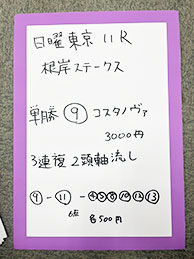 日曜東京 11R
根岸ステークス
単勝 ⑨ コスタノヴァ
3000円
3連複 2頭軸流し
⑨-⑪-④⑤⑧⑩⑫⑬
6点 各500円